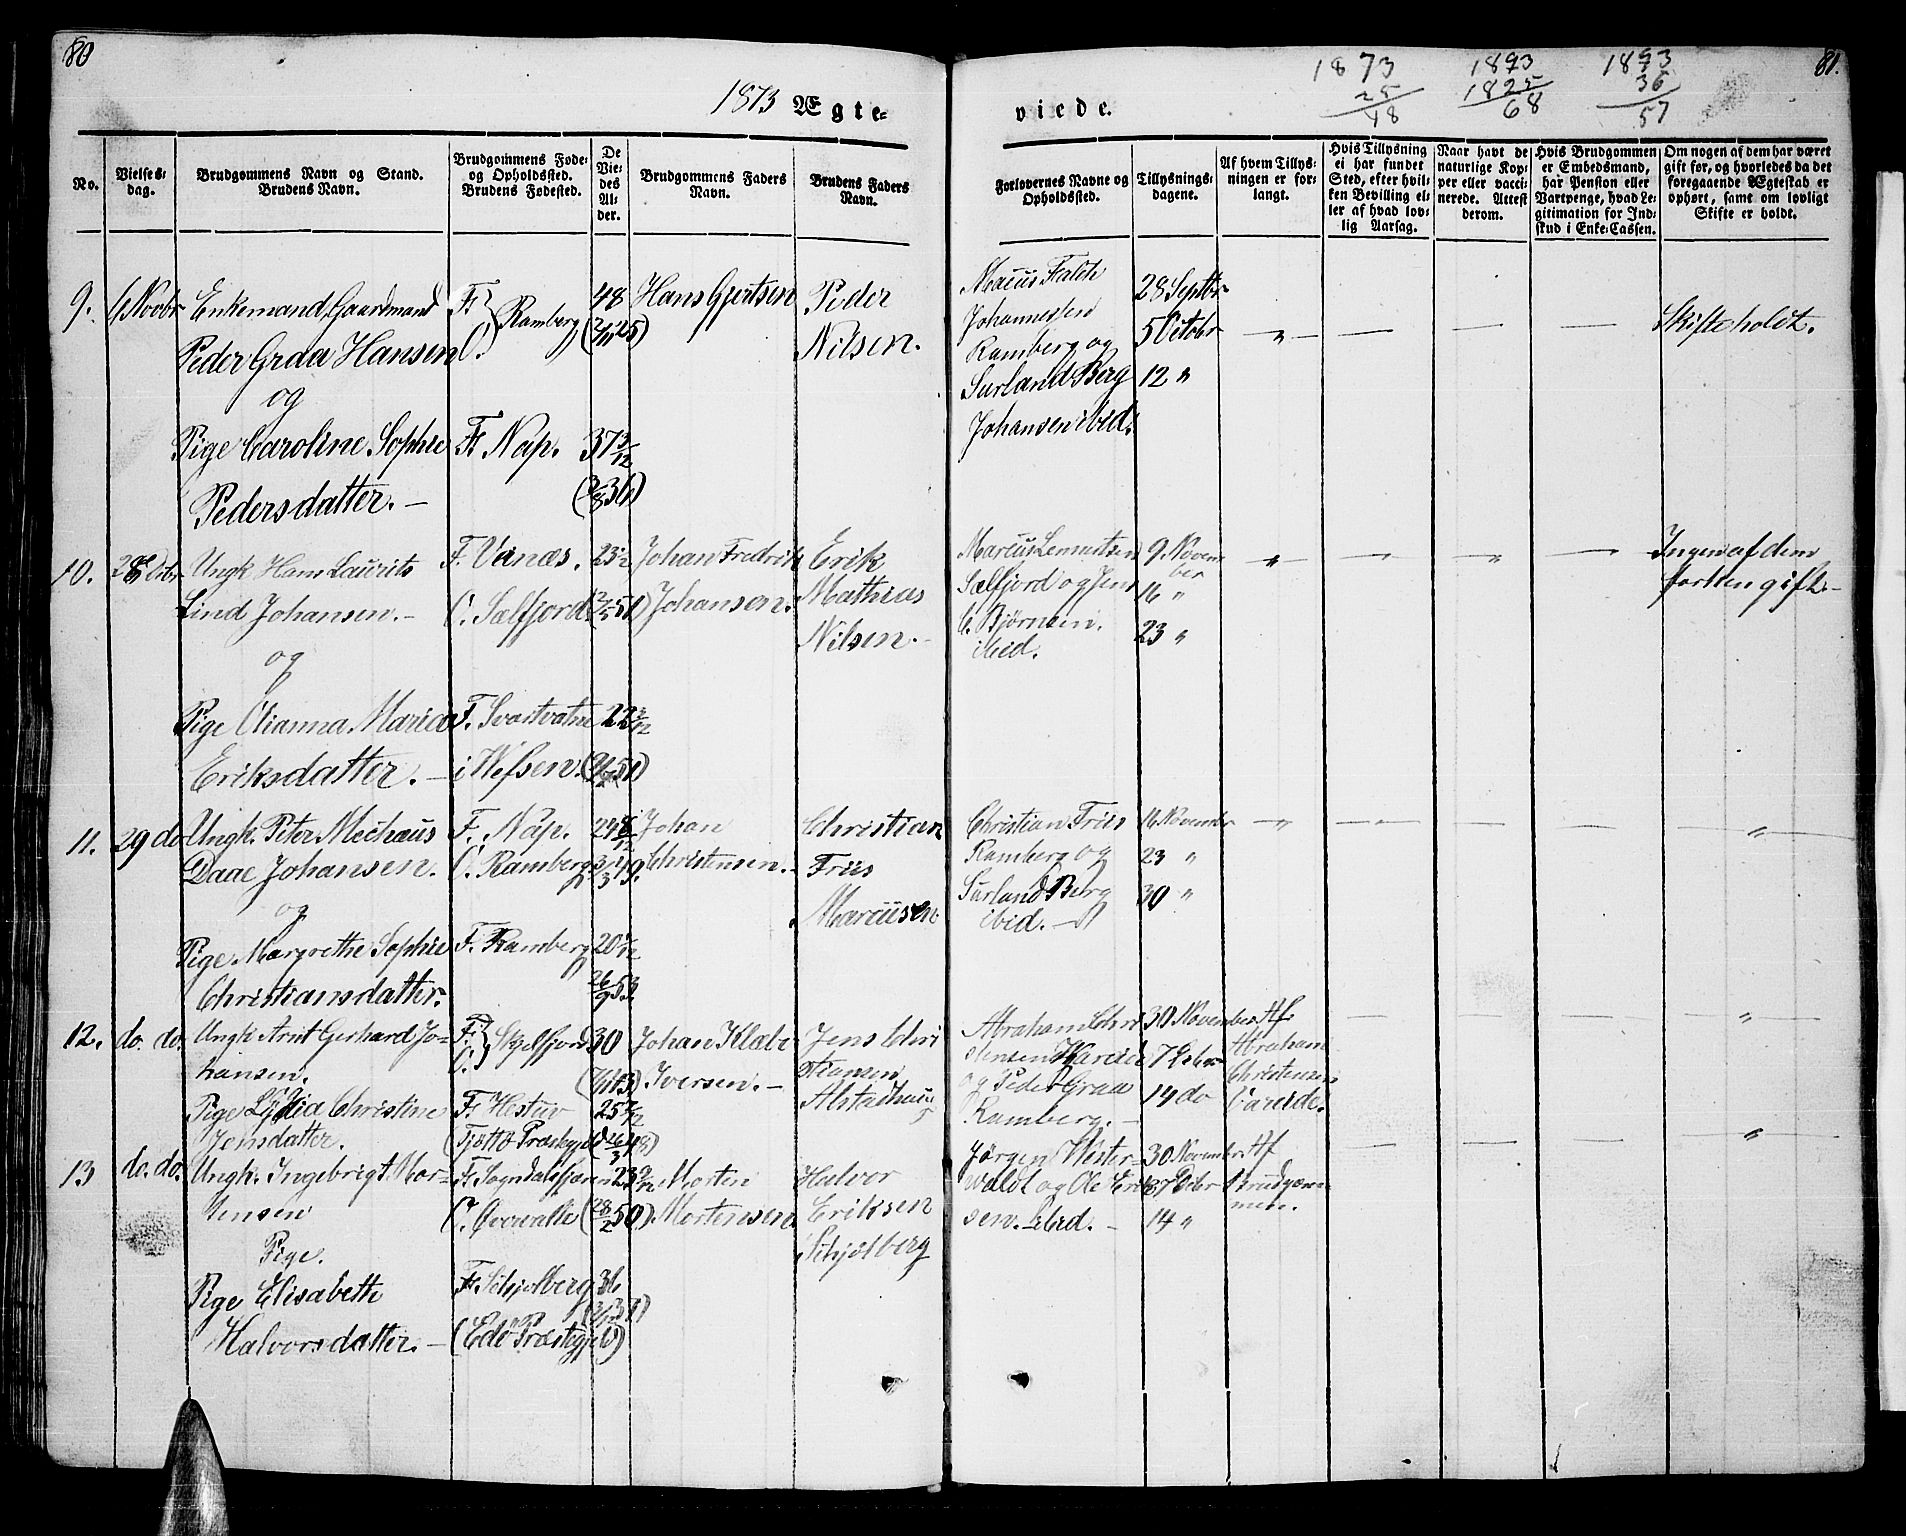 80
1873 Ægte-
viede.
1873
25
48
1893
1825
68
1893
36
57
81.
No.
Vielses-
dag.
Brudgommens Navn og Stand.
Brudens Navn.
Brudgommens Føde-
og Opholdssted.
Brudens Fødested.
De
Vie-
des
Al-
der.
Brudgommens Faders
Navn.
Brudens Faders
Navn.
Forlovernes Navne og
Opholdssted.
Tillysnings-
dagene.
Af hvem Tillys-
ningen er for-
langt.
Hvis Tillysning
ei har fundet
Sted, efter hvil-
ken Bevilling el-
ler af hvad lov-
lig Aarsag.
Naar havt de
naturlige Kop-
per eller vacci-
nerede. Attest
derom.
Hvis Brudgommen
er Embedsmand,
har Pension eller
Vartpenge, hvad Le-
gitimation for Ind-
skud i Enke-Cassen.
Om nogen af dem har været
gift før, og hvorledes da det
foregaaende Ægteskab er
ophørt, samt om lovligt
Skifte er holdt.
9.
Novbr
Enkemand, Gaardmand
Peder Graa Hansen
og
Pige Caroline Sophie
Pedersdatter. —
F.
O.
} Ramberg
F. Nap.
48
37 3/12
Hans Gjertsen
Peder
Nilsen.
Johannessen
Ramberg og
Surland Berg
Johansen ibid.
28 Septbr
5 Octobr
12 "
"
—
—
—
Skifte holdt.
10.
28 Debr
Ungk Hans Laurits
Lind Johansen. —
og
Pige Olianna Maria
Eriksdatter. —
F. Vanæs.
O. Sælfjord
F. Svartvatne
i Wefsen.
Johan Fredrik
Johansen.
Erik
Mathias
Nilsen. —
Sælfjord og Jens
C. Bjørnsen.
ibid.
9. Novem
ber
16 "
23 "
"
—
"
—
Ingen af dem
forhen gift. —
11.
29 do
Ungk. Peter Mechæus
Daae Johansen.
og
Pige Margrethe Sophie
Christiansdatter.
F. Nap.
O. Ramberg
F. Ramberg
26/9 53.
Johan
Christensen. —
Christian
Friis
Marcusen.
Christian Friis
Ramberg og
Surland Berg
ibid. —
16 Novembr
23 "
30 "
"
—
—
—
"
12.
do. do.
Ungk. Arnt Gerhard Jo-
hansen.
Pige Lydia Christine
Jensdatter.
F.
O.
} Skjelfjord
F. Hestuv
(Tjøttø Præstegjeld
30
Johan Klæbo
Iversen. —
Jens Chri
stiansen
Alstadhaug
Abraham Chri
stensen Vareide
og Peder Graa
Ramberg. —
30 November
7 Debr
14 do
Af
Abraham
Christensen
Vareide.
—
—
—
"
13
do. do.
Ungk. Ingebrigt Mor-
tensen
Pige.
Pige Elisabeth
Halvorsdatter. —
F. Sogndalsfjæren
O. Øverwalle
F. Schjelberg
(Edø Præstegjeld)
(28/2 50)
36
Morten
Mortensen
Halvor
Eriksen
Schjelberg
Jørgen Wester-
waldt og Ole Erik
sen. ibid. —
30 Novembr
7 Debr
14 "
Af
Brudgom-
men.
—
—
—
"